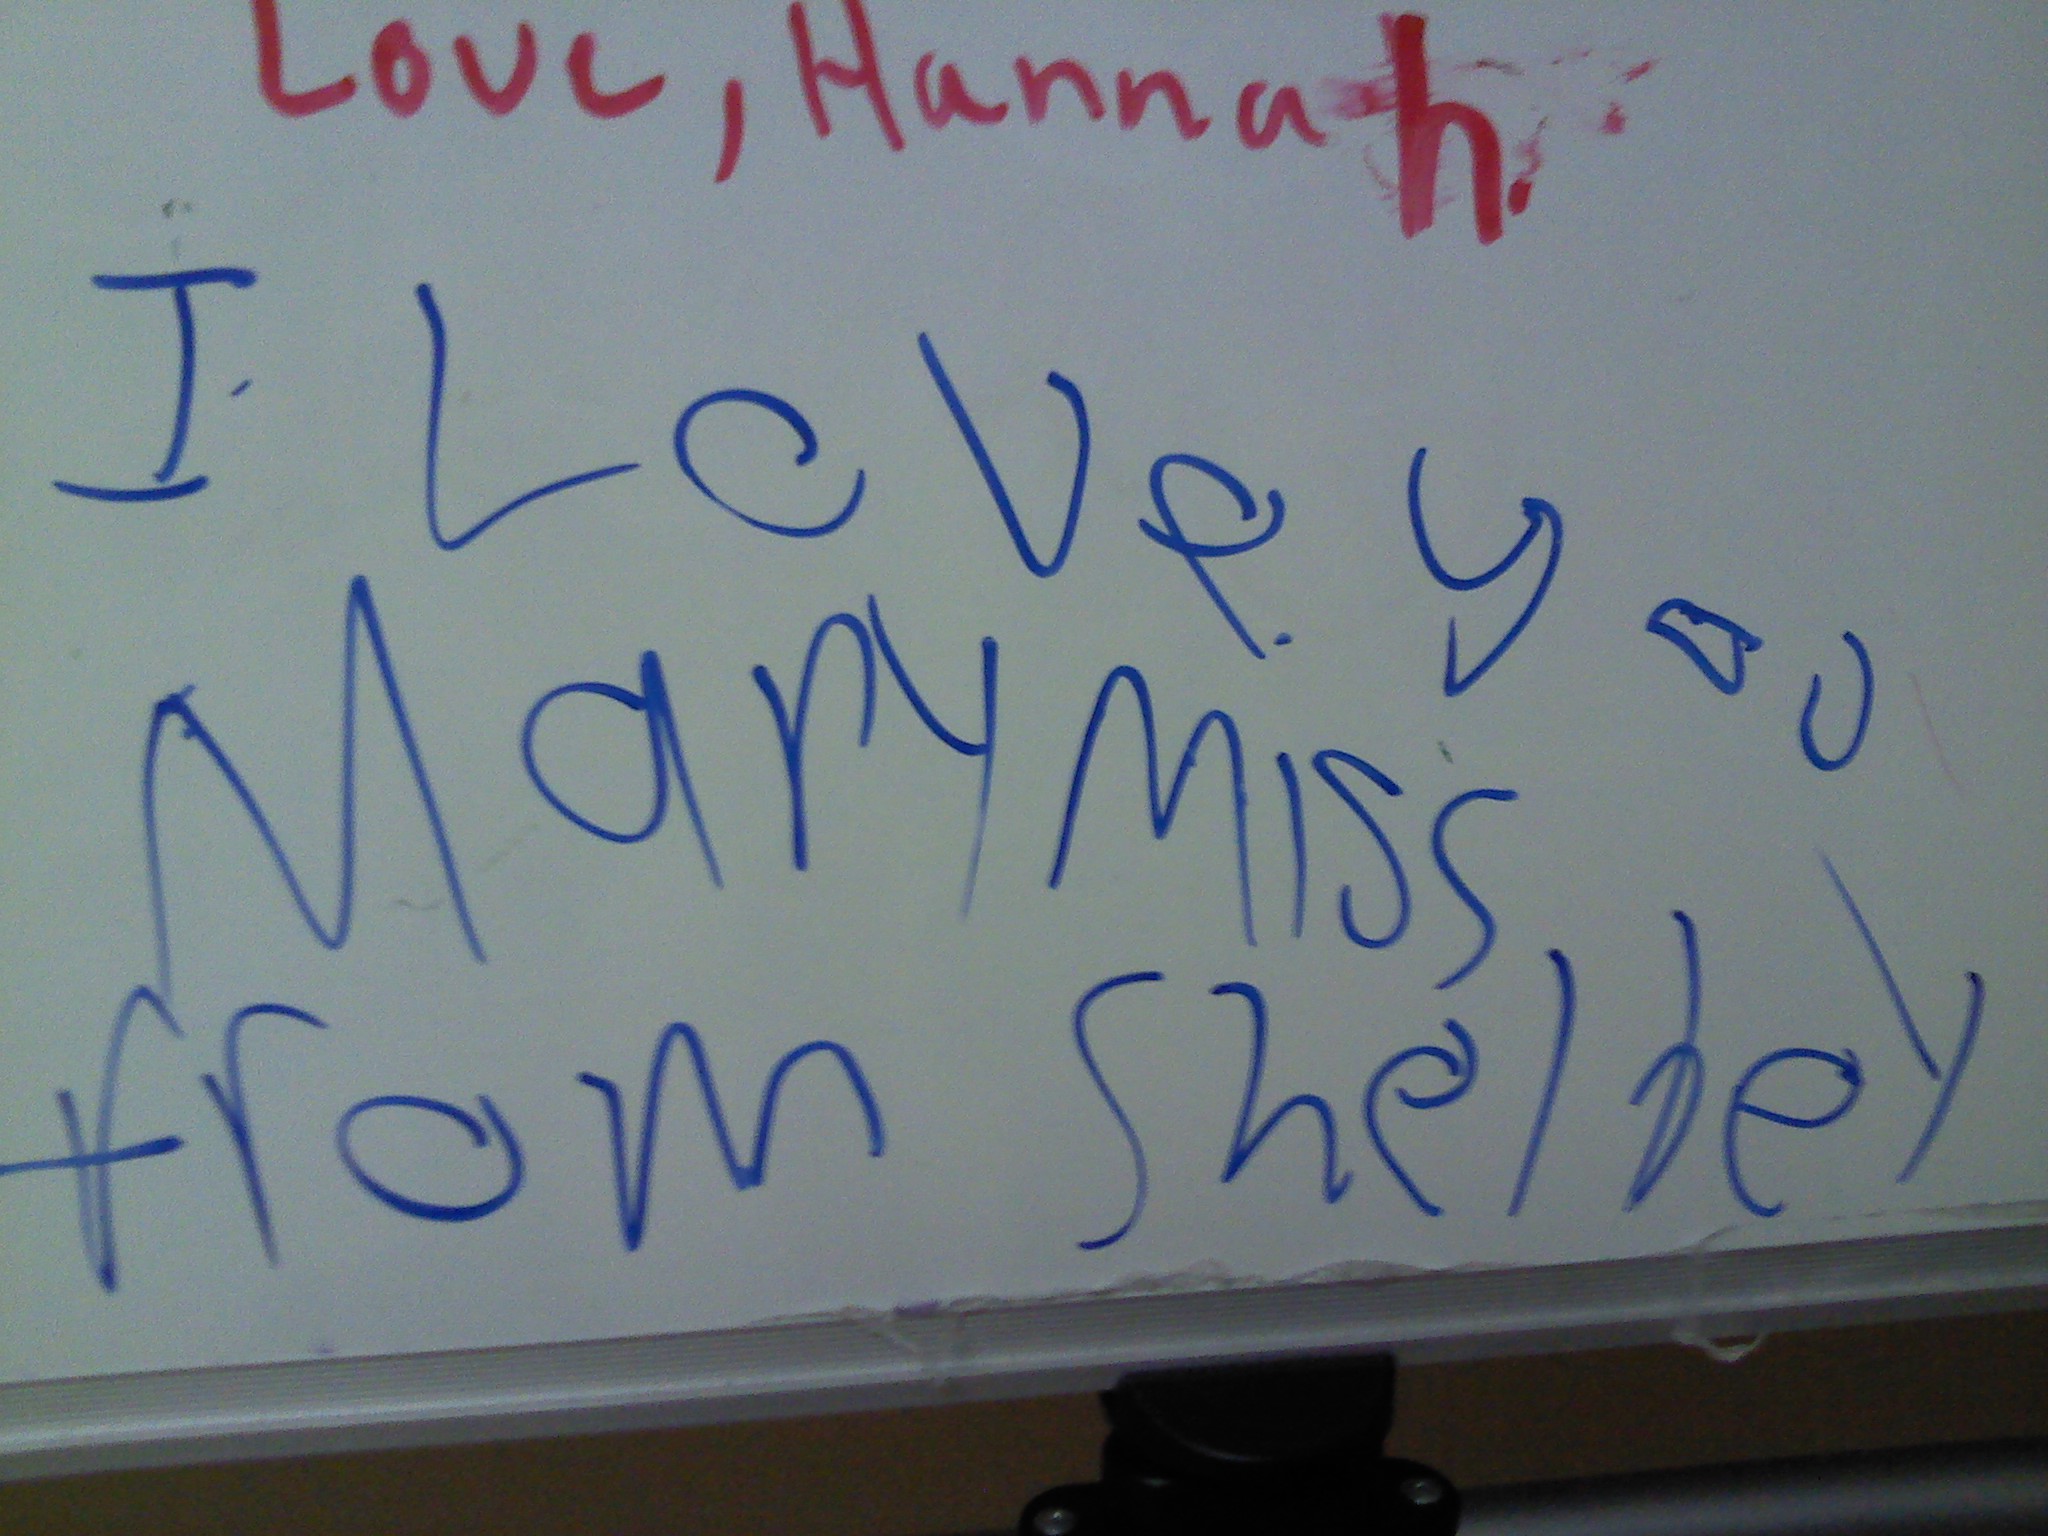 Love, Hannah.
I Love you
Mary Miss
from Shelbey